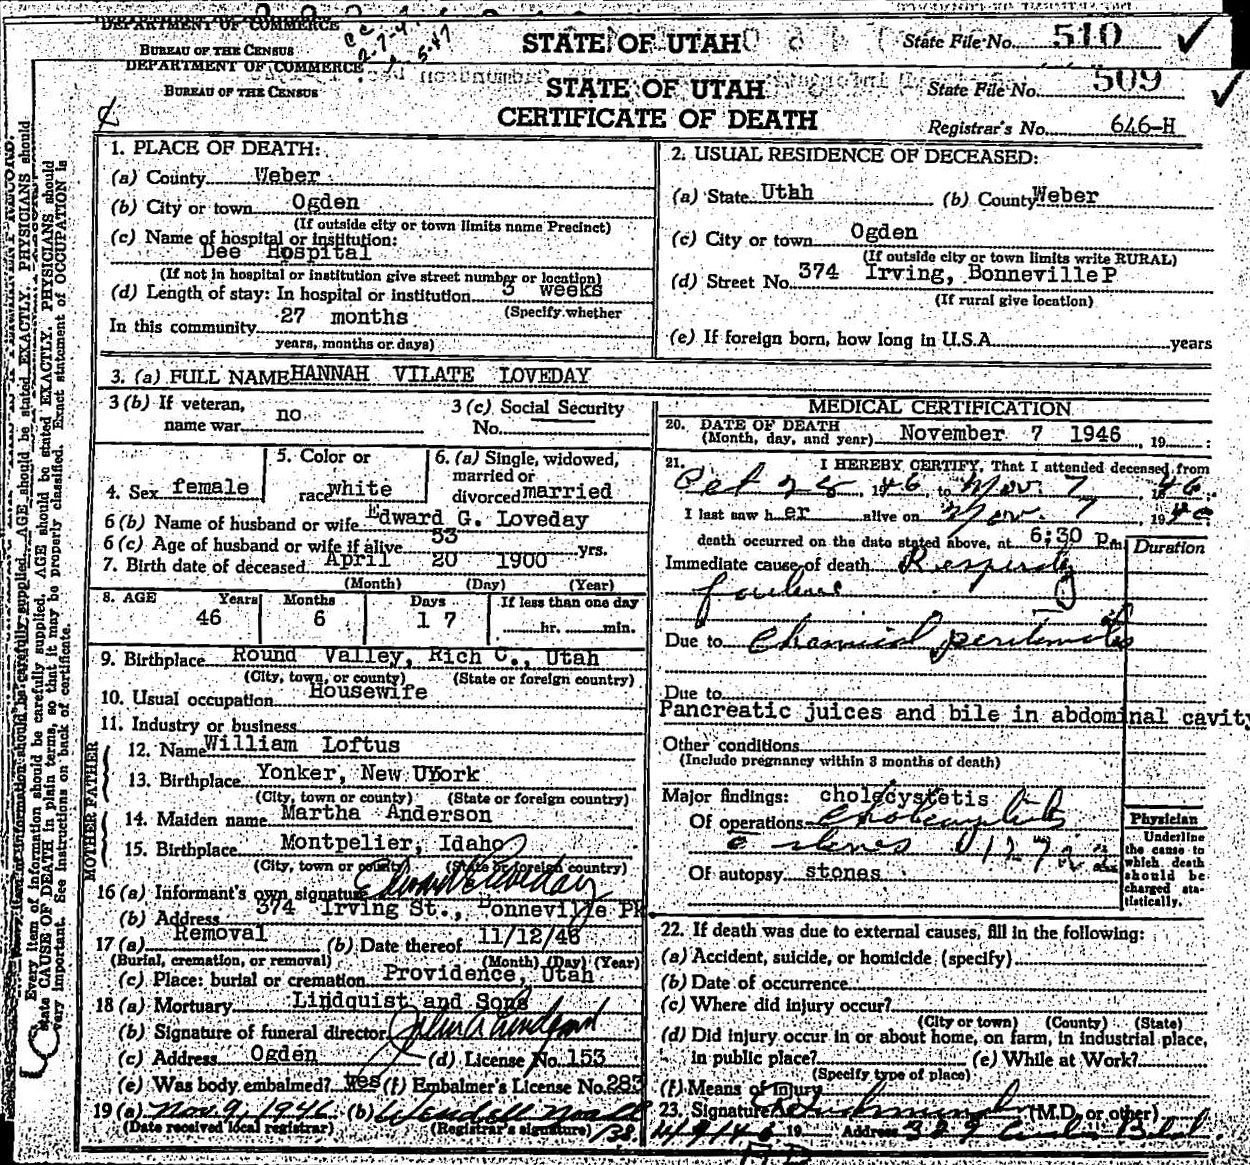 DEPARTMENT OF COMMERCE
BUREAU OF THE CENSUS
STATE OF UTAH
State File No. 510
DEPARTMENT OF COMMERCE
BUREAU OF THE CENSUS
STATE OF UTAH
CERTIFICATE OF DEATH
State File No. 509
Registrar's No. 646-H
1. PLACE OF DEATH:
(a) County Weber
(b) City or town Ogden
(If outside city or town limits name Precinct)
(c) Name of hospital or institution:
Dee Hospital
(If not in hospital or institution give street number or location)
(d) Length of stay: In hospital or institution 3 weeks
(Specify whether
In this community 27 months
years, months or days)
2. USUAL RESIDENCE OF DECEASED:
(a) State Utah (b) County Weber
(c) City or town Ogden
(If outside city or town limits write RURAL)
(d) Street No. 374 Irving, Bonneville P
(If rural give location)
(e) If foreign born, how long in U.S.A. years
3. (a) FULL NAME HANNAH VILATE LOVEDAY
3 (b) If veteran, name war no
3 (c) Social Security No.
4. Sex female
5. Color or race white
6. (a) Single, widowed, married or divorced married
6 (b) Name of husband or wife Edward G. Loveday
6 (c) Age of husband or wife if alive 53 yrs.
7. Birth date of deceased April 20 1900
(Month) (Day) (Year)
8. AGE Years Months Days If less than one day
46 6 17 hr. min.
9. Birthplace Round Valley, Rich C., Utah
(City, town, or county) (State or foreign country)
10. Usual occupation Housewife
11. Industry or business
FATHER
12. Name William Loftus
13. Birthplace Yonker, New UYork
(City, town or county) (State or foreign country)
MOTHER
14. Maiden name Martha Anderson
15. Birthplace Montpelier, Idaho
(City, town or county) (State or foreign country)
16 (a) Informant's own signature Edward G Loveday
(b) Address 374 Irving St., Bonneville Pk
17 (a) Removal (b) Date thereof 11/12/46
(Burial, cremation, or removal) (Month) (Day) (Year)
(c) Place: burial or cremation Providence, Utah
18 (a) Mortuary Lindquist and Sons
(b) Signature of funeral director
(c) Address Ogden (d) License No. 153
(e) Was body embalmed? yes (f) Embalmer's License No. 283
19 (a) Nov 9, 1946 (b) Wendell Noall
(Date received local registrar) (Registrar's signature) /38
MEDICAL CERTIFICATION
20. DATE OF DEATH
(Month, day, and year) November 7 1946, 19
21. I HEREBY CERTIFY, That I attended deceased from
Oct 25, 1946, to Nov. 7 1946.
I last saw her alive on Nov. 7 1946
death occurred on the date stated above, at 6:30 p.m.
Duration
Immediate cause of death Respiratory
failure
Due to Chemical peritonitis
Due to
Pancreatic juices and bile in abdominal cavity
Other conditions
(Include pregnancy within 3 months of death)
Major findings: cholecystetis
Of operations Cholecystitis
c stones 127 2 2
Of autopsy stones
Physician
Underline the cause to which death should be charged statistically.
22. If death was due to external causes, fill in the following:
(a) Accident, suicide, or homicide (specify)
(b) Date of occurrence
(c) Where did injury occur?
(City or town) (County) (State)
(d) Did injury occur in or about home, on farm, in industrial place,
in public place? (e) While at Work?
(Specify type of place)
(f) Means of Injury
23. Signature (M.D. or other)
11/9/46 19 Address 329
M D
Every item of information should be carefully supplied. AGE should be stated EXACTLY. PHYSICIANS should
state CAUSE OF DEATH in plain terms, so that it may be properly classified. Exact statement of OCCUPATION is
very important. See instructions on back of certificate.